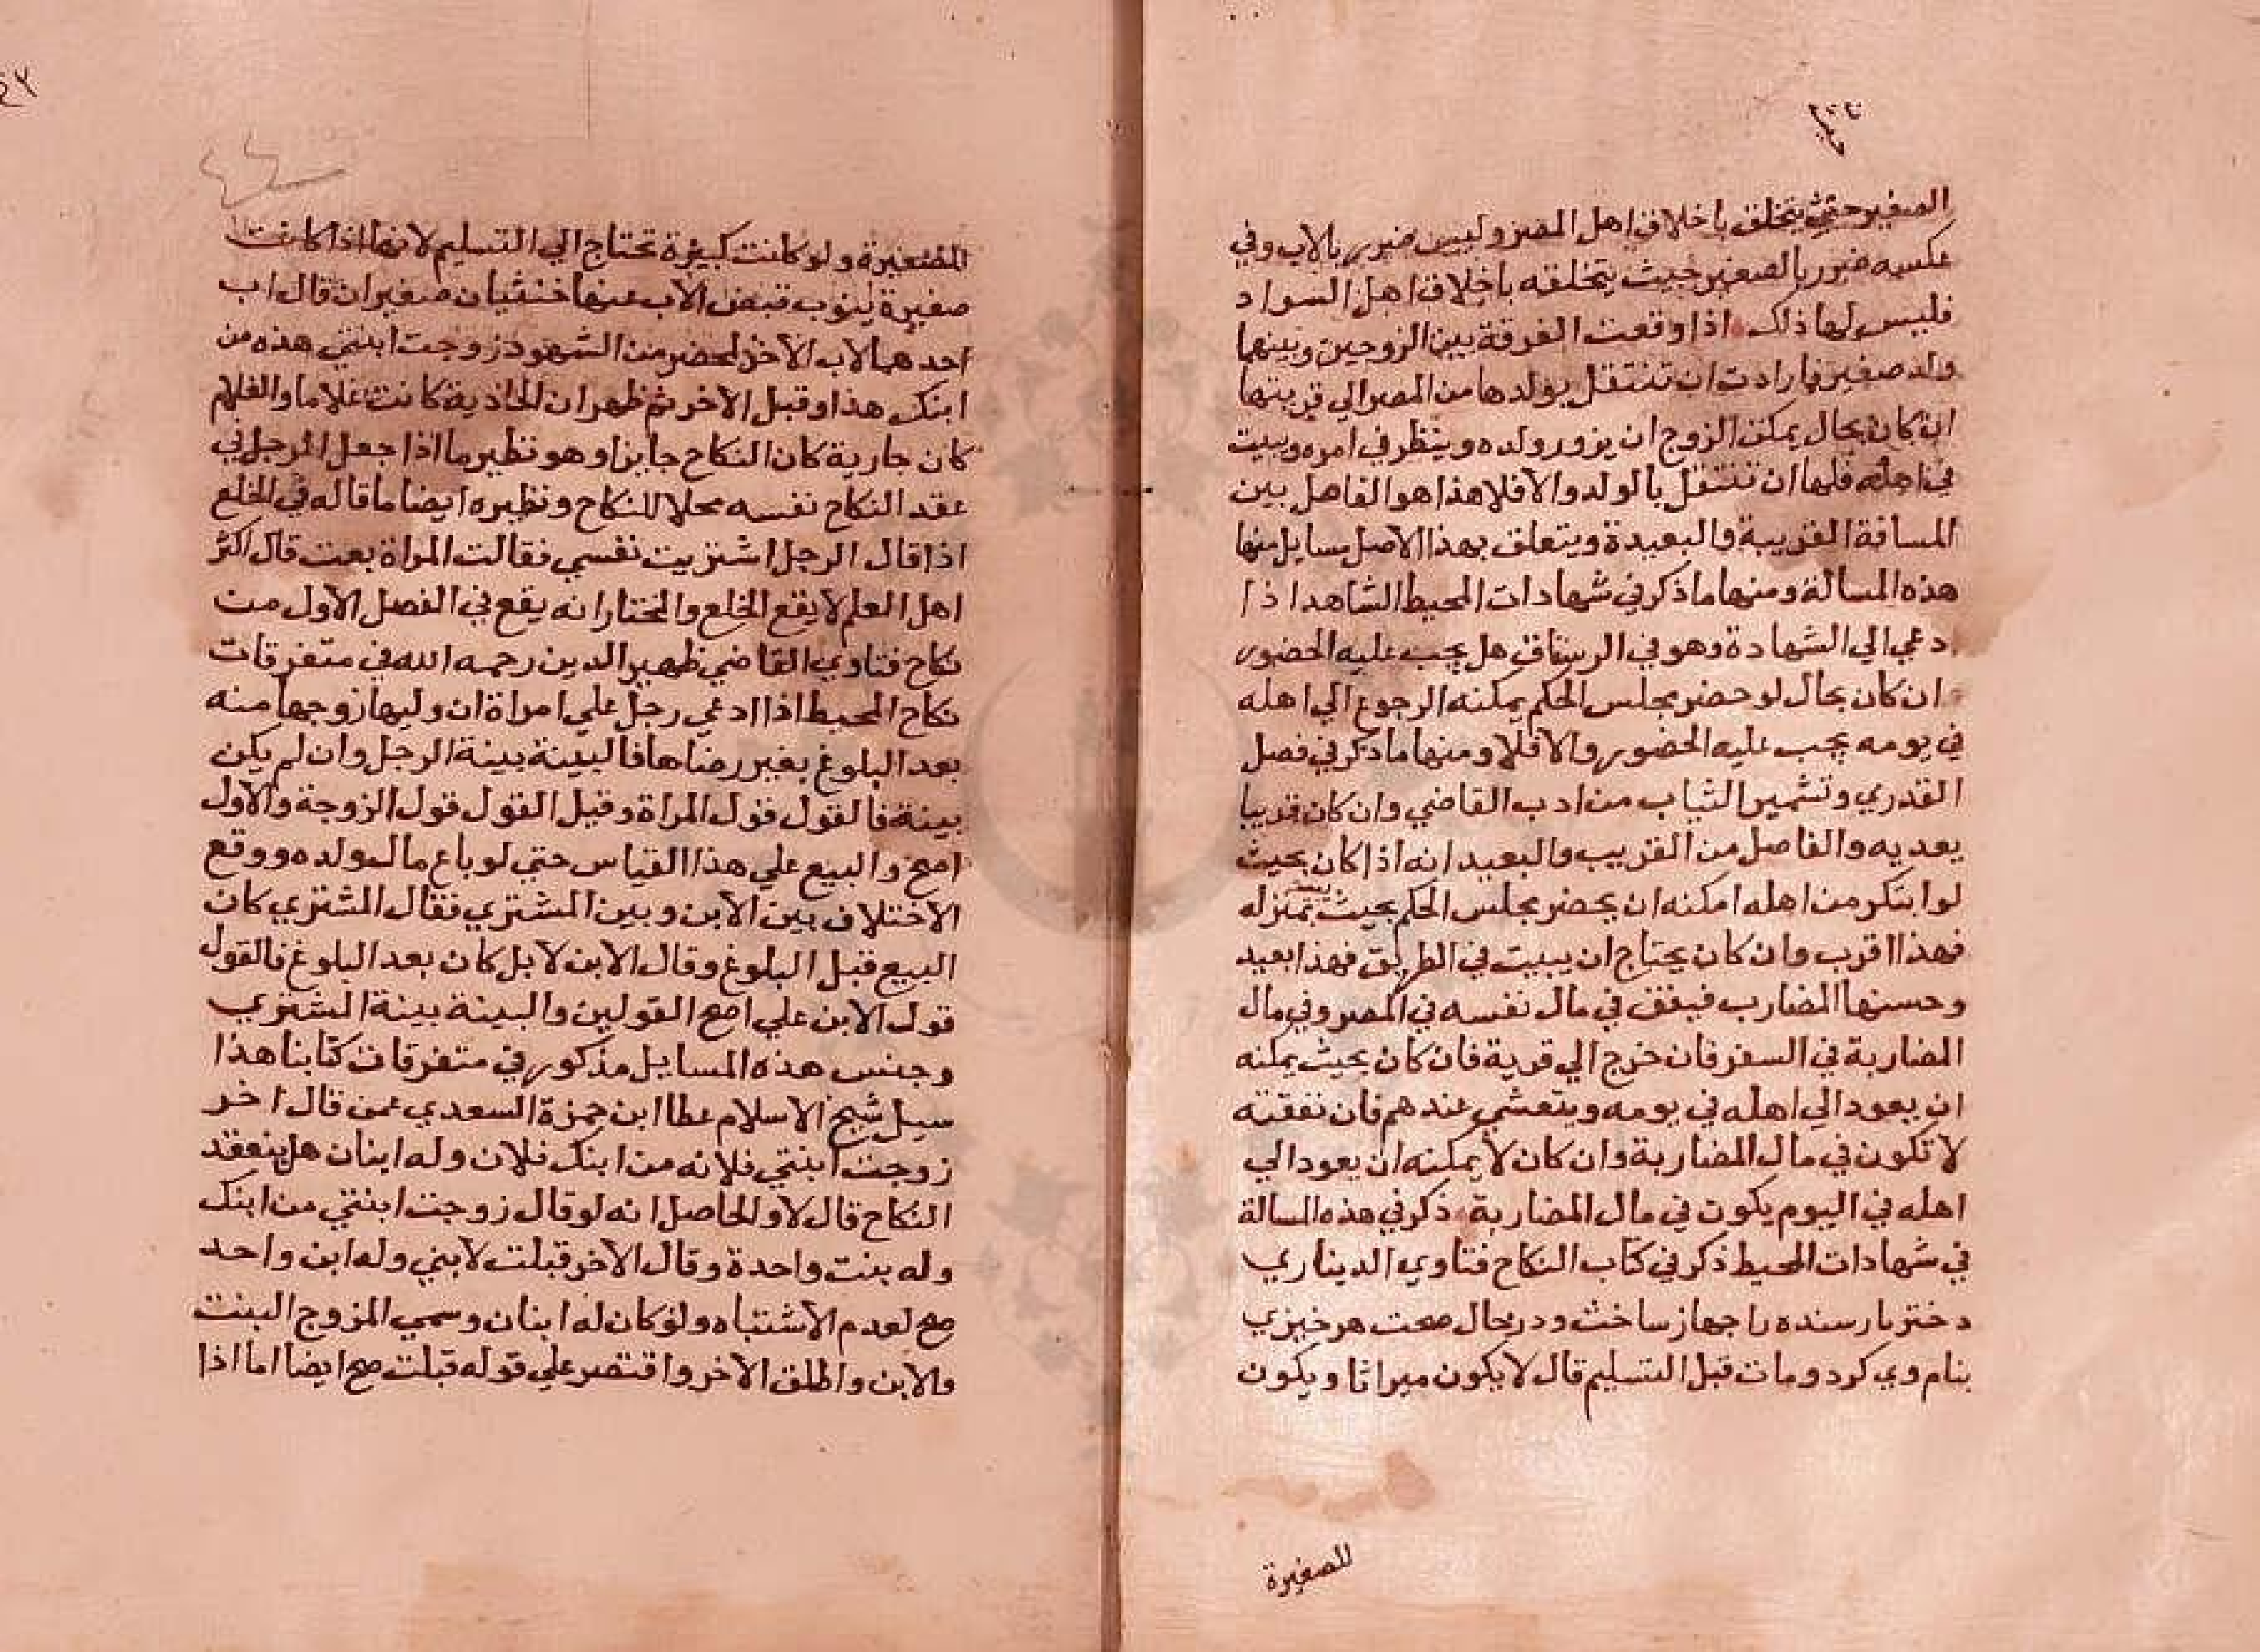 الصغير حيث يتخلق باخلاق اهل المصر وليس ضرر بالاب وفي
عكسه ضرر بالصغير حيث يتخلقه باخلاق اهل السواد
فليس لها ذلك اذا وقعت الفرقة بين الزوجين وبينهما
ولد صغير فارادت ان تنتقل بولدها من المصر الي قريتها
ان كان بحال يمكن الزوج ان يزور ولده وينظر في امره ويبيت
في اهله فلها ان تنتقل بالولد والا فلا هذا هو الفاصل بين
المسافة القريبة والبعيدة ويتعلق بهذا الاصل مسايل منها
هذه المسالة ومنها ما ذكر في شهادات المحيط الشاهد اذا
دعي الي الشهادة وهو في الرستاق هل يجب عليه الحضور
ان كان بحال لو حضر مجلس الحكم يمكنه الرجوع الي اهله
في يومه يجب عليه الحضور والا فلا ومنها ما ذكر في فصل
القدري وتشمير الثياب من ادب القاضي وان كان قريبا
يعديه والفاصل من القريب والبعيد انه اذا كان بحيث
لو ابتكر من اهله امكنه ان يحضر مجلس الحكم بحيث بمنزله
فهذا اقرب وان كان يحتاج ان يبيت في الطريق فهذا بعيد
وحسنها المضارب فينفق في مال نفسه في المصر وفي مال
المضاربة في السفر فان خرج الي قرية فان كان بحيث يمكنه
ان يعود الي اهله في يومه ويتعشي عندهم فان نفقته
لا تكون في مال المضاربة وان كان لا يمكنه ان يعود الي
اهله في اليوم يكون في مال المضاربة ذكر في هذه المسالة
في شهادات المحيط ذكر في كتاب النكاح فتاوي الديناري
دختر نارسنده را جهاز ساخت ودر حال صحت هر خيزي
بنام وي كرد ومات قبل التسليم قال لا يكون ميراثا ويكون
للصغيرة
للصغيرة ولو كانت كبيرة تحتاج الي التسليم لانها اذا كانت
صغيرة ينوب قبض الاب عنها خنثيان صغيران قال اب
احدهما لاب الاخر لحضر من الشهود زوجت ابنتي هذه من
ابنك هذا وقبل الاخر ثم ظهر ان الجارية كانت غلاما والغلام
كان جارية كان النكاح جايزا وهو نظير ما اذا جعل الرجل في
عقد النكاح نفسه محلا للنكاح ونظيره ايضا ما قاله في الخلع
اذا قال الرجل اشتريت نفسي فقالت المراة بعت قال اكثر
اهل العلم لا يقع الخلع والمختار انه يقع في الفصل الاول من
نكاح فتاوي القاضي ظهير الدين رحمه الله في متفرقات
نكاح المحيط اذا ادعي رجل علي امراة ان وليها زوجها منه
بعد البلوغ بغير رضاها فالبينة بينة الرجل وان لم يكن
بينة فالقول قول المراة وقيل القول قول الزوجة والاول
اصح والبيع علي هذا القياس حتي لو باع مال ولده ووقع
الاختلاف بين الابن وبين المشتري فقال المشتري كان
البيع قبل البلوغ وقال الابن لا بل كان بعد البلوغ فالقول
قول الابن علي اصح القولين والبينة بينة المشتري
وجنس هذه المسايل مذكور في متفرقات كتابنا هذا
سيل شيخ الاسلام عطا ابن حمزة السعدي عمن قال اخر
زوجت ابنتي فلانه من ابنك فلان وله ابنان هل ينعقد
النكاح قال لا والحاصل انه لو قال زوجت ابنتي من ابنك
وله بنت واحدة وقال الاخر قبلت لابني وله ابن واحد
صح لعدم الاشتباه ولو كان له ابنان وسمي المزوج البنت
والابن واطلق الاخر واقتصر علي قوله قبلت صح ايضا اما اذا